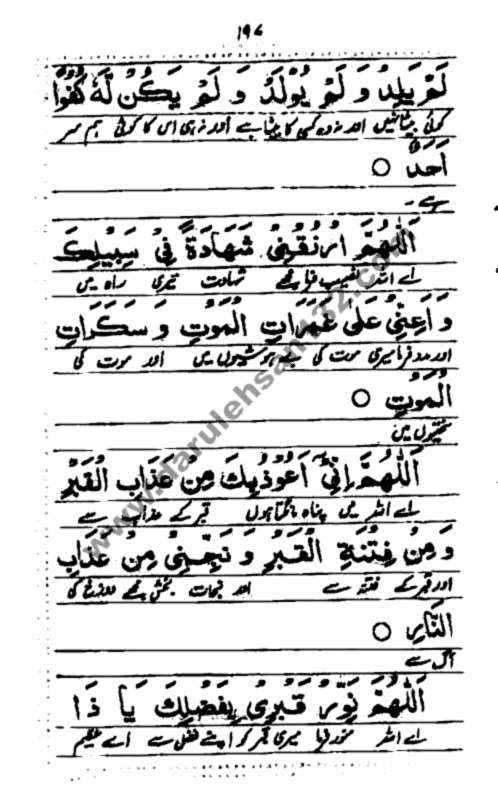 ۱۹۷
لَمْ يَلِدْ وَ لَمْ يُوْلَدْ وَ لَمْ يَكُنْ لَّهٗ كُفُوًا
کوئی بیٹا نہیں اور نہ وہ کسی کا بیٹا ہے اور نہ ہی اس کا کوئی ہم سر
اَحَدٌ ○
ہے۔
اَللّٰهُمَّ ارْزُقْنِيْ شَهَادَةً فِيْ سَبِيْلِكَ
اے اللہ نصیب فرما مجھے شہادت تیری راہ میں
وَ اَعِنِّيْ عَلٰى غَمَرَاتِ الْمَوْتِ وَ سَكَرَاتِ
اور مدد فرما میری موت کی بے ہوشیوں میں اور موت کی
الْمَوْتِ ○
سختیوں میں
اَللّٰهُمَّ اِنِّيْ اَعُوْذُ بِكَ مِنْ عَذَابِ الْقَبْرِ
اے اللہ میں پناہ مانگتا ہوں قبر کے عذاب سے
وَ مِنْ فِتْنَةِ الْقَبْرِ وَ نَجِّنِيْ مِنْ عَذَابِ
اور قبر کے فتنہ سے اور نجات بخش مجھے دوزخ کی
النَّارِ ○
آگ سے
اَللّٰهُمَّ نَوِّرْ قَبْرِيْ بِفَضْلِكَ يَا ذَا
اے اللہ منور فرما میری قبر کو اپنے فضل سے اے عظیم
www.darulehsan132.com